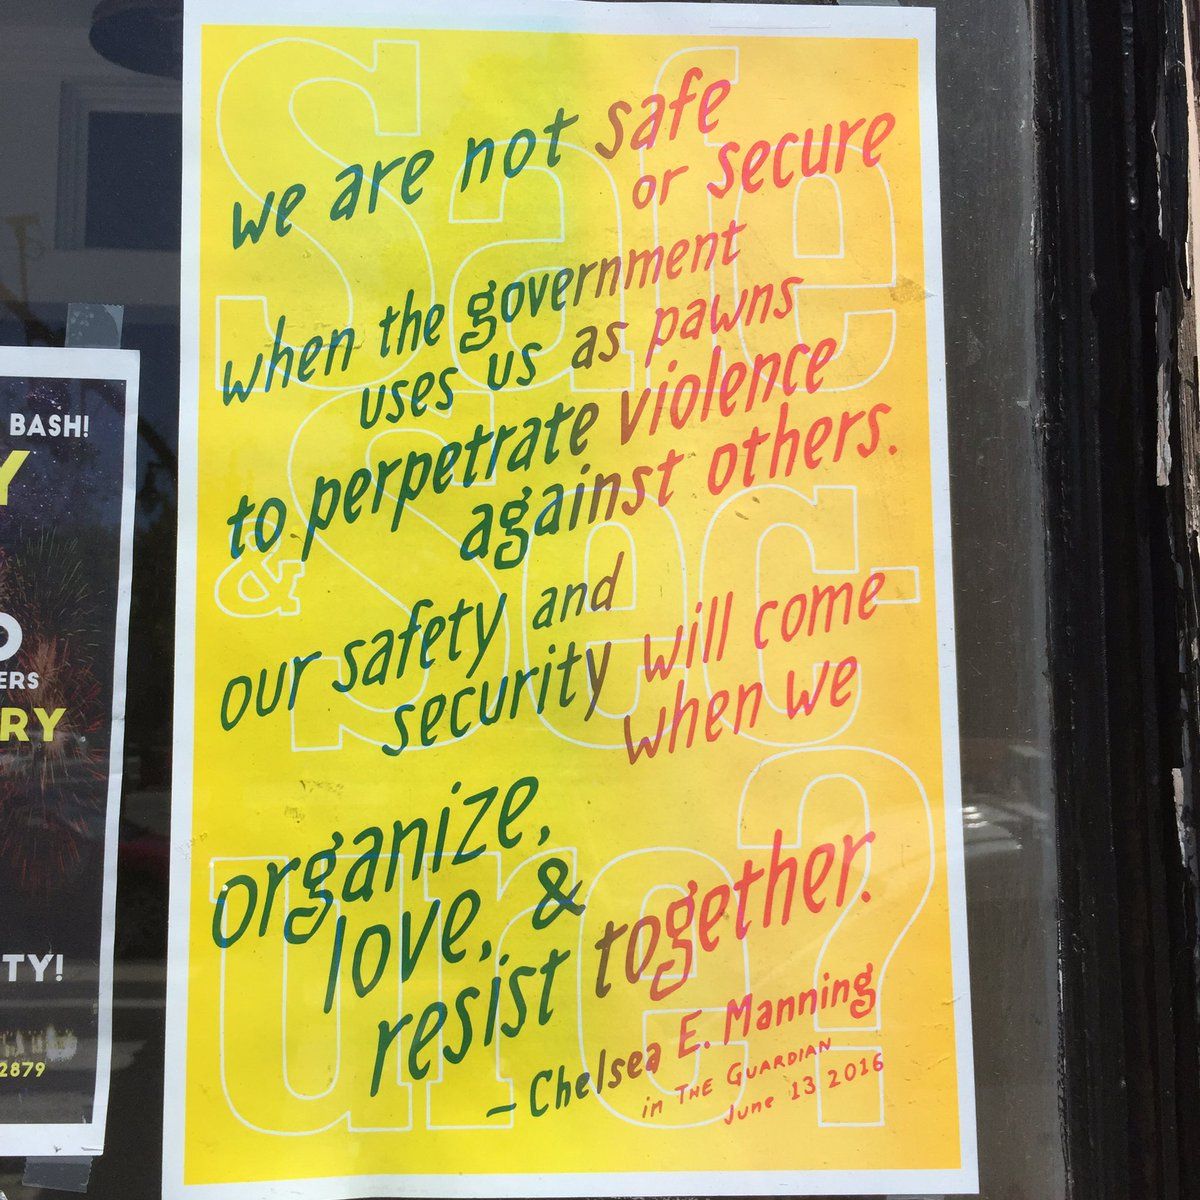 we are not safe
or secure
when the government
uses us as pawns
to perpetrate violence
against others.
our safety and
security will come
when we
organize,
love, &
resist together.
– Chelsea E. Manning
in THE GUARDIAN
June 13 2016
Safe
& Sec
ure?
BASH!
Y
O
ERS
RY
TY!
2879